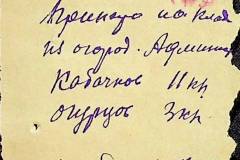 Принято на склад
из огород. Админи
Кабачков 11 кг
огурцов 3 кг